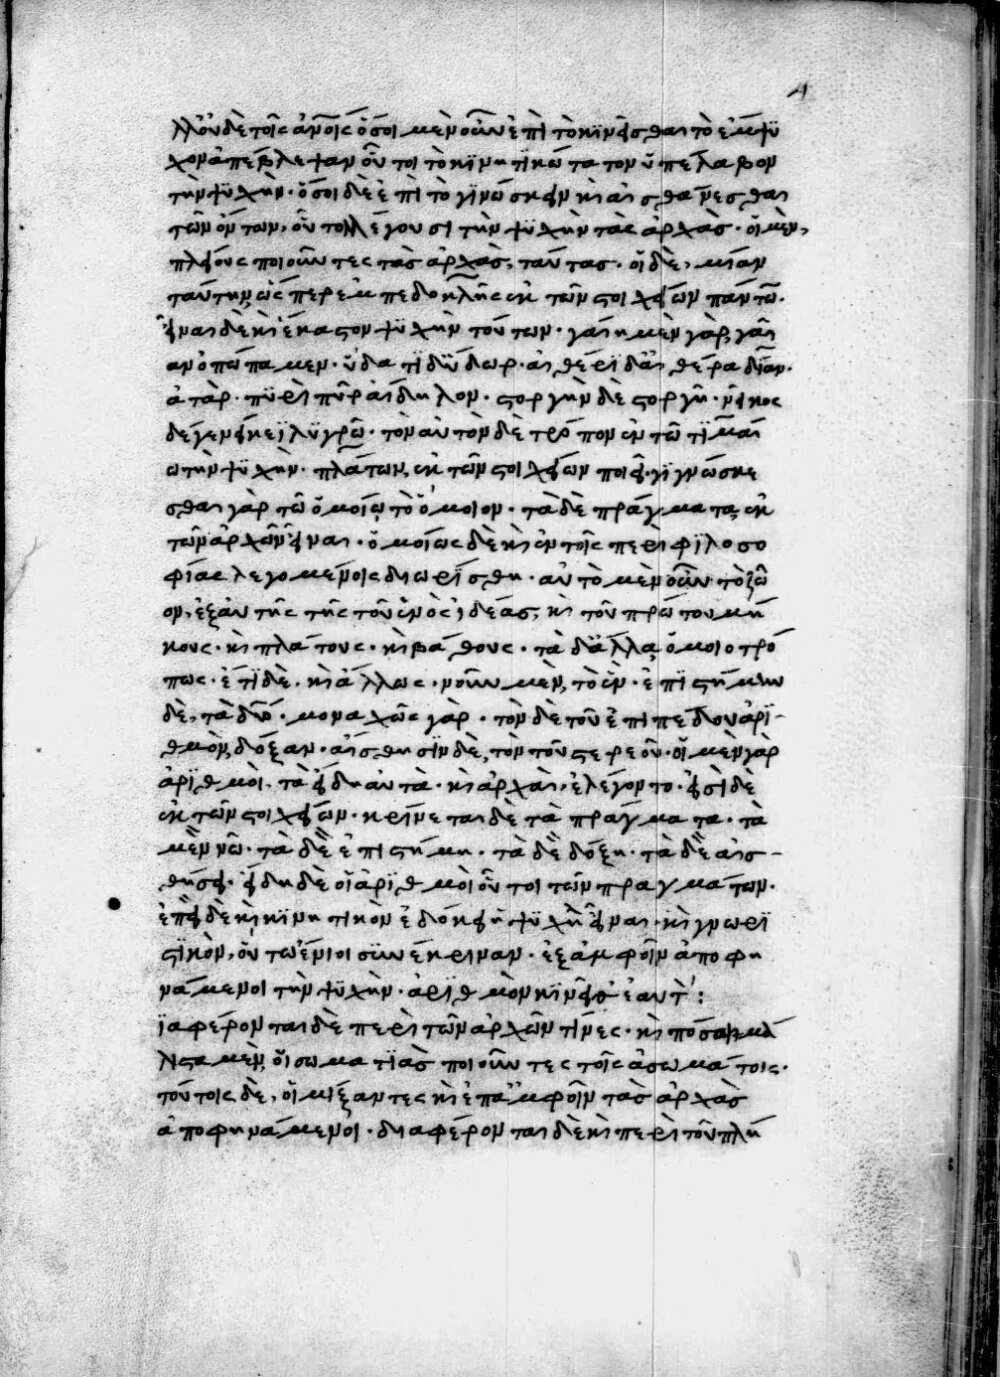 4
λλ' οὐδὲ τοῖς ἀνοις· ὅσοι μὲν οὖν ἐπὶ τὸ κινεῖσθαι τὸ ἔμψυ
χον ἀπέβλεψαν οὗτοι τὸ κινητικώτατον ὑπέλαβον
τὴν ψυχήν· ὅσοι δὲ ἐπὶ τὸ γινώσκειν κὶ αἰσθάνεσθαι
τῶν ὄντων, οὗτοι λέγουσι τὴν ψυχὴν τὰς ἀρχὰς· οἱ μὲν,
πλείους ποιοῦντες τὰς ἀρχὰς, ταύτας· οἱ δὲ, μίαν
ταύτην, ὥσπερ ἐμπεδοκλῆς ἐκ τῶν στοιχείων πάντων·
εἶναι δὲ κὶ ἕκαστον ψυχὴν τούτων· γαίη μὲν γὰρ γαῖ
αν ὀπώπαμεν· ὕδατι δ' ὕδωρ· αἰθέρι δ' αἰθέρα δῖαν·
ἀτὰρ πυρὶ πῦρ ἀίδηλον· στοργὴν δὲ στοργῆ· νεῖκος
δέ γε νείκεϊ λυγρῶ· τὸν αὐτὸν δὲ τρόπον ἐν τῶ τιμαί
ω τὴν ψυχὴν· πλάτων, ἐκ τῶν στοιχείων ποιεῖ· γιγνώσκε
σθαι γὰρ τῶ ὁμοίω τὸ ὅμοιον· τὰ δὲ πράγματα, ἐκ
τῶν ἀρχῶν εἶναι· ὁμοίως δὲ κὶ ἐν τοῖς περὶ φιλοσο
φίας λεγομένοις διωρίσθη· αὐτὸ μὲν οὖν τὸ ζῶ
ον, ἐξ αὐτῆς τῆς τοῦ ἑνὸς ἰδέας, κὶ τοῦ πρώτου μή
κους· κὶ πλάτους· κὶ βάθους· τὰ δ' ἄλλα, ὁμοιοτρό
πως· ἔτι δὲ, κὶ ἄλλως· νοῦν μὲν, τὸ ἕν· ἐπιστήμην
δὲ, τὰ δύο· μοναχῶς γὰρ· τὸν δὲ τοῦ ἐπιπέδου ἀρι-
θμὸν, δόξαν· αἴσθησιν δὲ, τὸν τοῦ στερεοῦ· οἱ μὲν γὰρ
ἀριθμοὶ, τὰ εἴδη αὐτὰ· κὶ ἀρχαὶ, ἐλέγοντο· εἰσὶ δὲ
ἐκ τῶν στοιχείων· κρίνεται δὲ τὰ πράγματα· τὰ
μὲν νῶ· τὰ δὲ ἐπιστήμη· τὰ δὲ δόξη· τὰ δὲ αἰσ-
θήσει· εἴδη δὲ οἱ ἀριθμοὶ οὗτοι τῶν πραγμάτων·
ἐπεὶ δὲ κὶ κινητικὸν ἐδόκει ἡ ψυχὴ εἶναι· κὶ γνωρι
στικὸν, οὕτω ἔνιοι συνέπλεξαν ἐξ ἀμφοῖν ἀποφη
νάμενοι τὴν ψυχὴν· ἀριθμὸν κινοῦνθ' ἑαυτὸ:
ιαφέρονται δὲ περὶ τῶν ἀρχῶν τίνες· κὶ πόσαι· μά
λιστα μὲν, οἱ σωματικὰς ποιοῦντες τοῖς ἀσωμάτοις·
τούτοις δὲ, οἱ μίξαντες κὶ ἐπ' ἀμφοῖν τὰς ἀρχὰς
ἀποφηνάμενοι· διαφέρονται δὲ κὶ περὶ τοῦ πλή